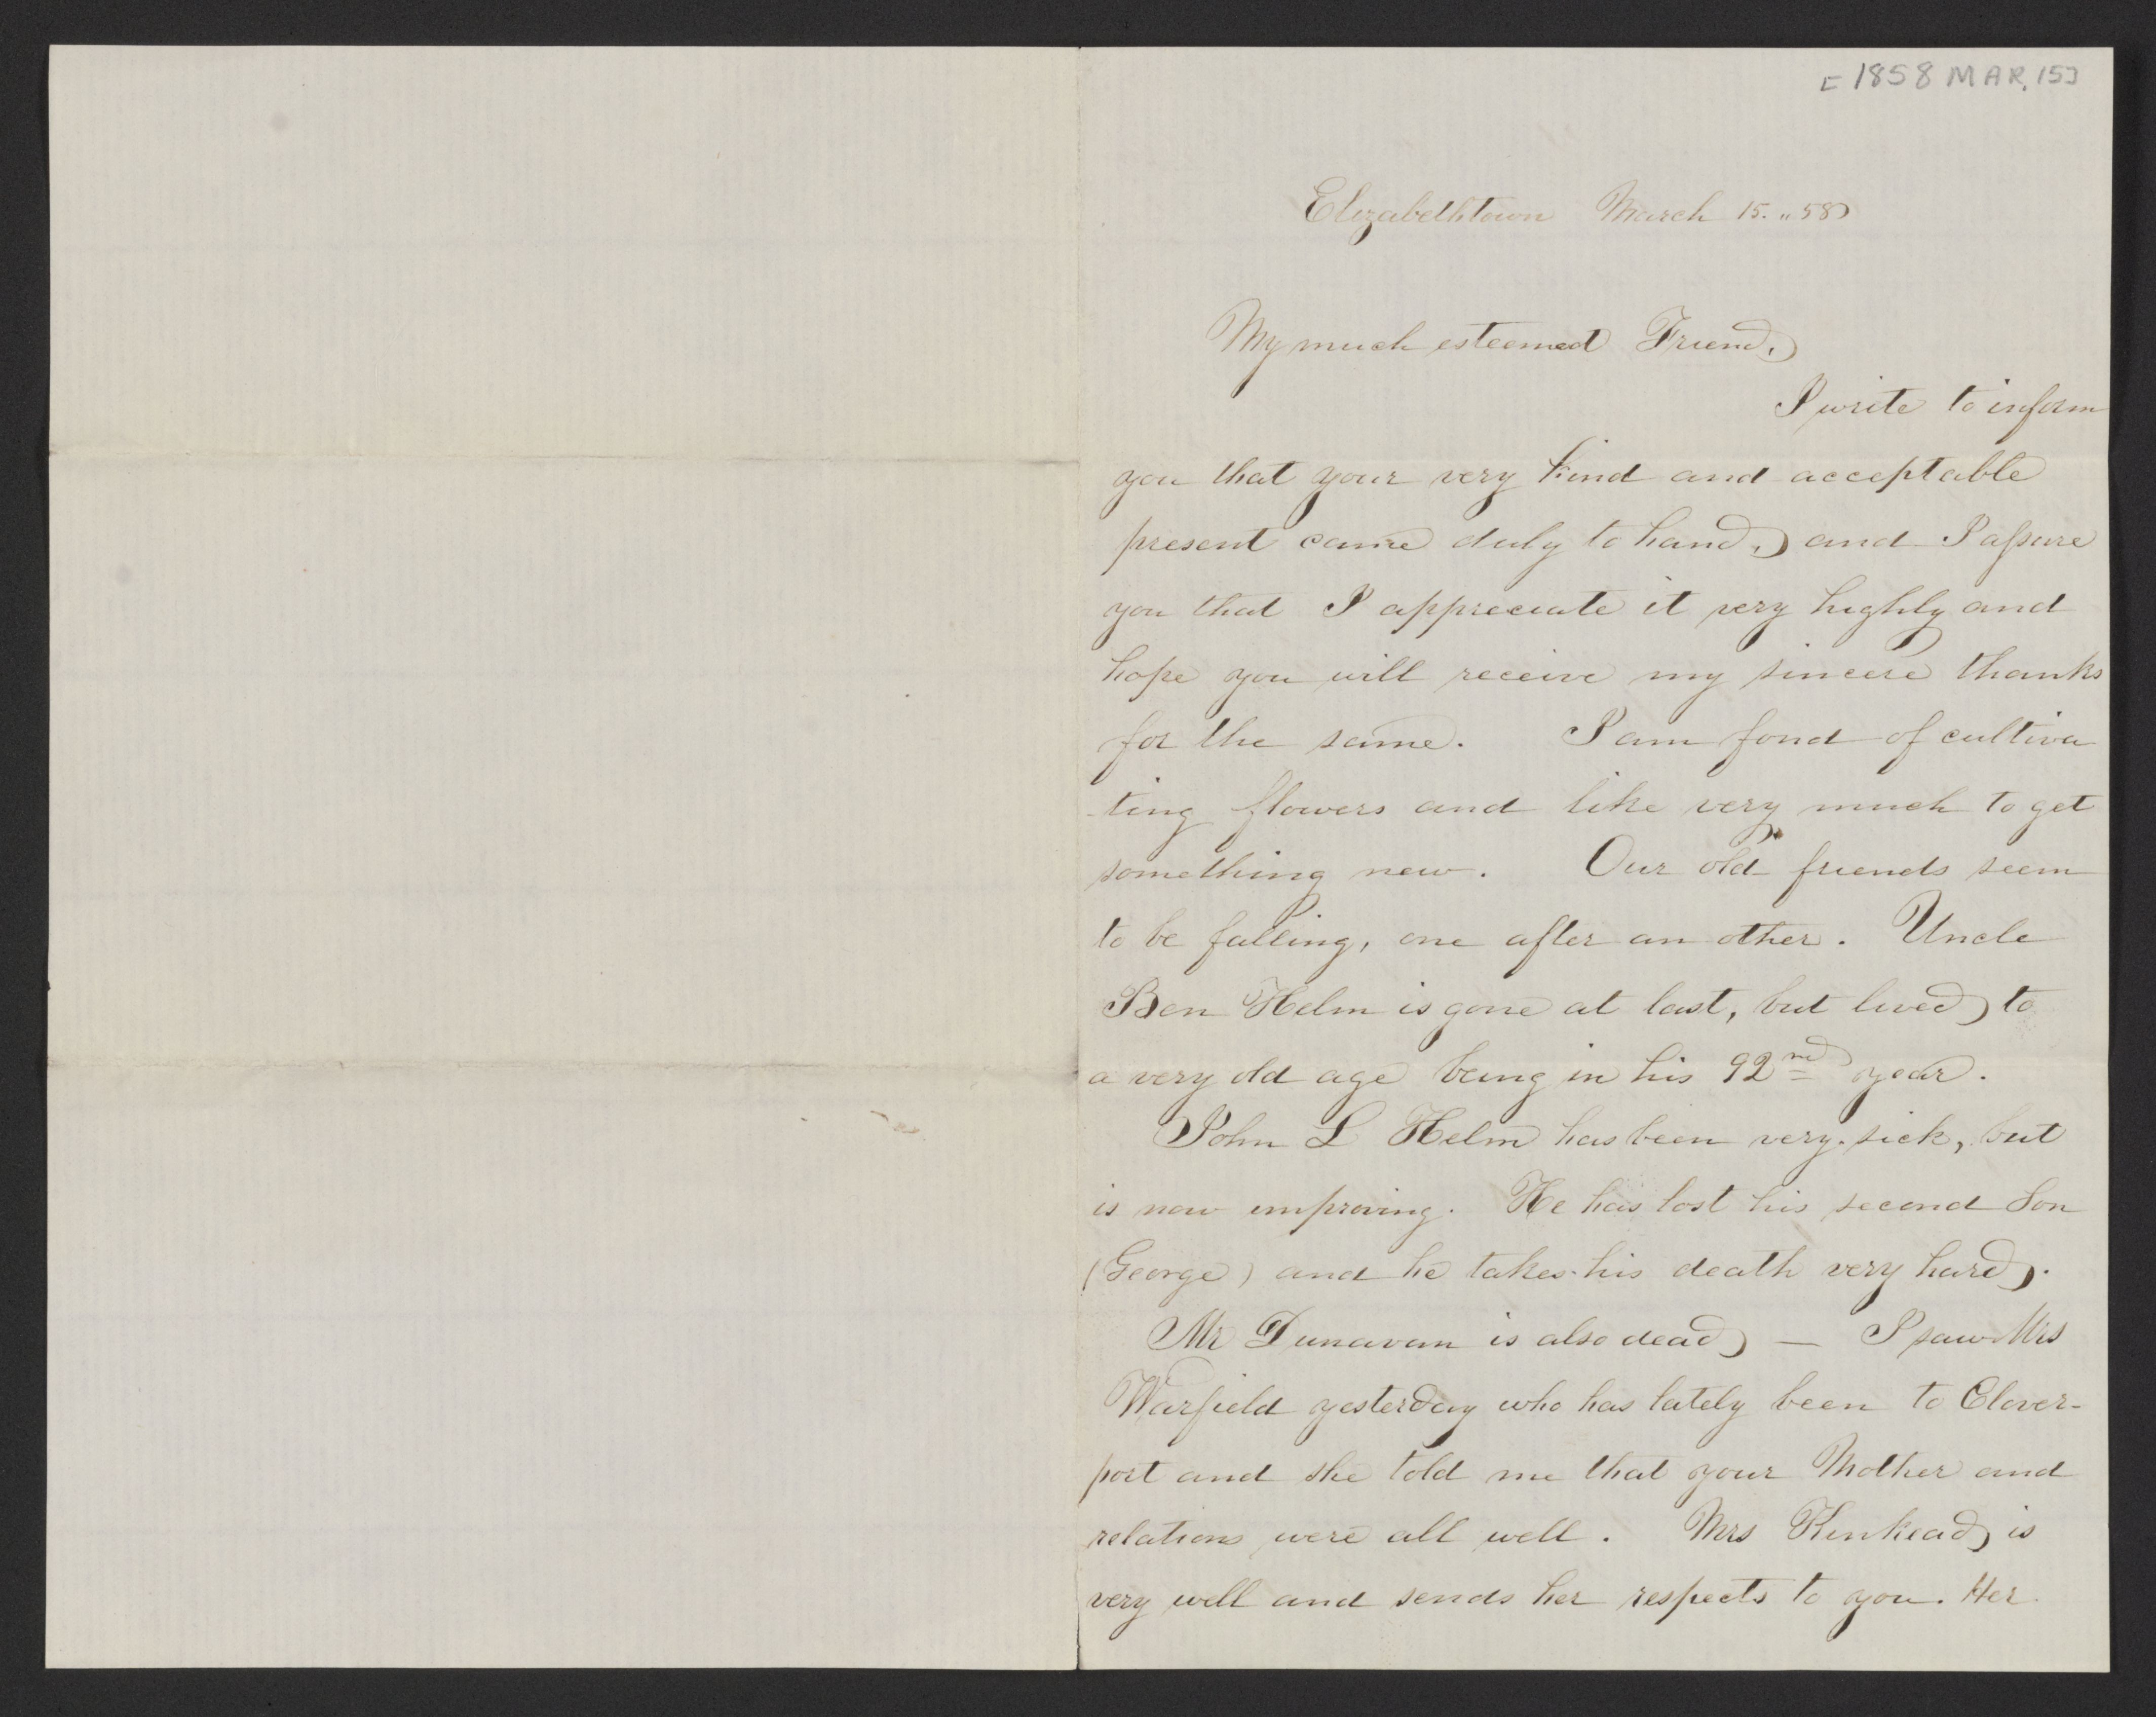 [1858 MAR. 15]
Elizabethtown March 15. „ 58
My much esteemed Friend,
I write to inform
you that your very kind and acceptable
present came duly to hand, and I assure
you that I appreciate it very highly and
hope you will receive my sincere thanks
for the same. I am fond of cultiva
-ting flowers and like very much to get
something new. Our old friends seem
to be falling, one after an other. Uncle
Ben Helm is gone at last, but lived to
a very old age being in his 92nd year.
John L Helm has been very sick, but
is now improving. He has lost his second Son
(George) and he takes his death very hard.
Mr Dunavan is also dead — I saw Mrs
Warfield yesterday who has lately been to Clover-
port and she told me that your Mother and
relations were all well. Mrs Kinkead is
very well and sends her respects to you. Her